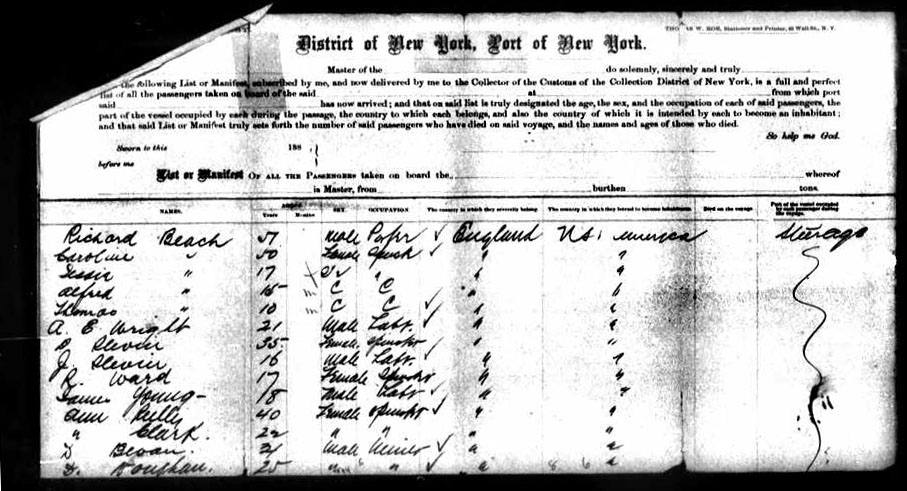 THOMAS W. ROE, Stationer and Printer, 42 Wall-St., N. Y.
District of New York, Port of New York.
Master of the do solemnly, sincerely and truly
the following List or Manifest, subscribed by me, and now delivered by me to the Collector of the Customs of the Collection District of New York, is a full and perfect
list of all the passengers taken on board of the said at from which port
said has now arrived; and that on said list is truly designated the age, the sex, and the occupation of each of said passengers, the
part of the vessel occupied by each during the passage, the country to which each belongs, and also the country of which it is intended by each to become an inhabitant;
and that said List or Manifest truly sets forth the number of said passengers who have died on said voyage, and the names and ages of those who died.
So help me God.
Sworn to this 188
before me
List or Manifest OF ALL THE PASSENGERS taken on board the whereof
is Master, from burthen tons.
NAMES. Years Months SEX. OCCUPATION The country to which they severally belong. The country in which they intend to become inhabitants. Died on the voyage. Part of the vessel occupied by each passenger during the voyage.
Richard Beach 51 Male England America Steerage
Caroline " 50 Female "
Jessie " 17 " "
Alfred " 15 C C " "
Thomas " 10 C C " "
A. E. Wright 21 Male Labr. " "
Slevin 35 Female Spinster " "
J. Slevin 16 Male Labr. " "
R. Ward 17 Female Spinster " "
James Young 18 Male Labr " "
Ann Kelly 40 Female Spinster " "
" Clark. 22 " " " "
D Bevan. 21 Male Miner " "
25 " " " "